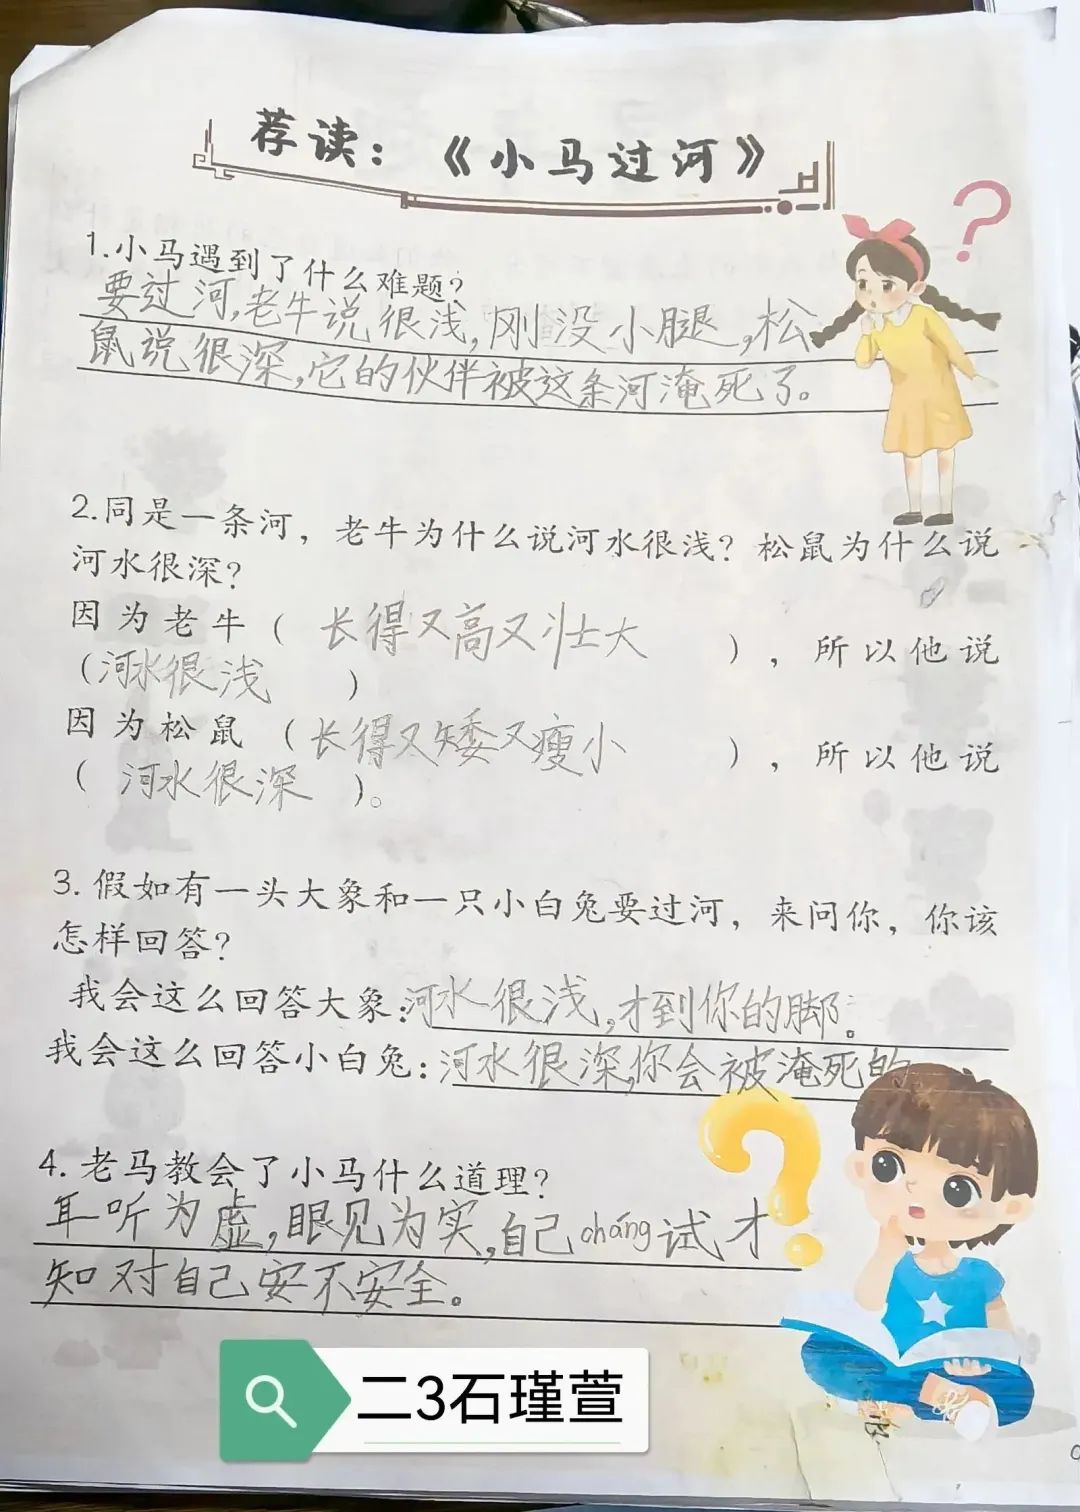 荐读：《小马过河》
1.小马遇到了什么难题？
要过河,老牛说很浅,刚没小腿,松
鼠说很深,它的伙伴被这条河淹死了。
2.同是一条河，老牛为什么说河水很浅？松鼠为什么说
河水很深？
因为老牛（长得又高又壮大），所以他说
（河水很浅）
因为松鼠（长得又矮又瘦小），所以他说
（河水很深）。
3.假如有一头大象和一只小白兔要过河，来问你，你该
怎样回答？
我会这么回答大象:河水很浅,才到你的脚。
我会这么回答小白兔:河水很深,你会被淹死的
4.老马教会了小马什么道理？
耳听为虚,眼见为实,自己cháng试才
知对自己安不安全。
二3石瑾萱